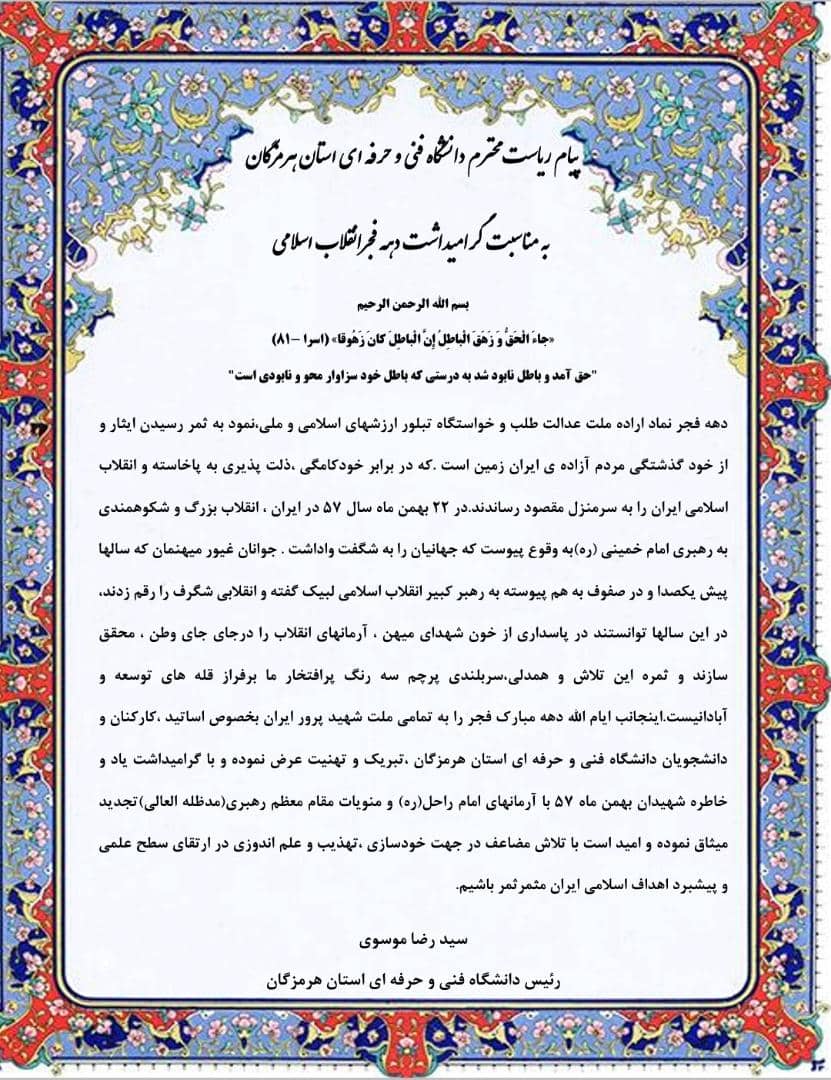 پیام ریاست محترم دانشگاه فنی و حرفه ای استان هرمزگان
به مناسبت گرامیداشت دهه فجر انقلاب اسلامی
بسم الله الرحمن الرحیم
«جاءَ الْحَقُّ وَ زَهَقَ الْباطِلُ إِنَّ الْباطِلَ كانَ زَهُوقا» (اسرا –۸۱)
"حق آمد و باطل نابود شد به درستی که باطل خود سزاوار محو و نابودی است"
دهه فجر نماد اراده ملت عدالت طلب و خواستگاه تبلور ارزشهای اسلامی و ملی،نمود به ثمر رسیدن ایثار و
از خود گذشتگی مردم آزاده ی ایران زمین است .که در برابر خودکامگی ،ذلت پذیری به پاخاسته و انقلاب
اسلامی ایران را به سرمنزل مقصود رساندند.در ۲۲ بهمن ماه سال ۵۷ در ایران ، انقلاب بزرگ و شکوهمندی
به رهبری امام خمینی (ره)به وقوع پیوست که جهانیان را به شگفت واداشت . جوانان غیور میهنمان که سالها
پیش یکصدا و در صفوف به هم پیوسته به رهبر کبیر انقلاب اسلامی لبیک گفته و انقلابی شگرف را رقم زدند،
در این سالها توانستند در پاسداری از خون شهدای میهن ، آرمانهای انقلاب را درجای جای وطن ، محقق
سازند و ثمره این تلاش و همدلی،سربلندی پرچم سه رنگ پرافتخار ما برفراز قله های توسعه و
آبادانیست.اینجانب ایام الله دهه مبارک فجر را به تمامی ملت شهید پرور ایران بخصوص اساتید ،کارکنان و
دانشجویان دانشگاه فنی و حرفه ای استان هرمزگان ،تبریک و تهنیت عرض نموده و با گرامیداشت یاد و
خاطره شهیدان بهمن ماه ۵۷ با آرمانهای امام راحل(ره) و منویات مقام معظم رهبری(مدظله العالی)تجدید
میثاق نموده و امید است با تلاش مضاعف در جهت خودسازی ،تهذیب و علم اندوزی در ارتقای سطح علمی
و پیشبرد اهداف اسلامی ایران مثمرثمر باشیم.
سید رضا موسوی
رئیس دانشگاه فنی و حرفه ای استان هرمزگان